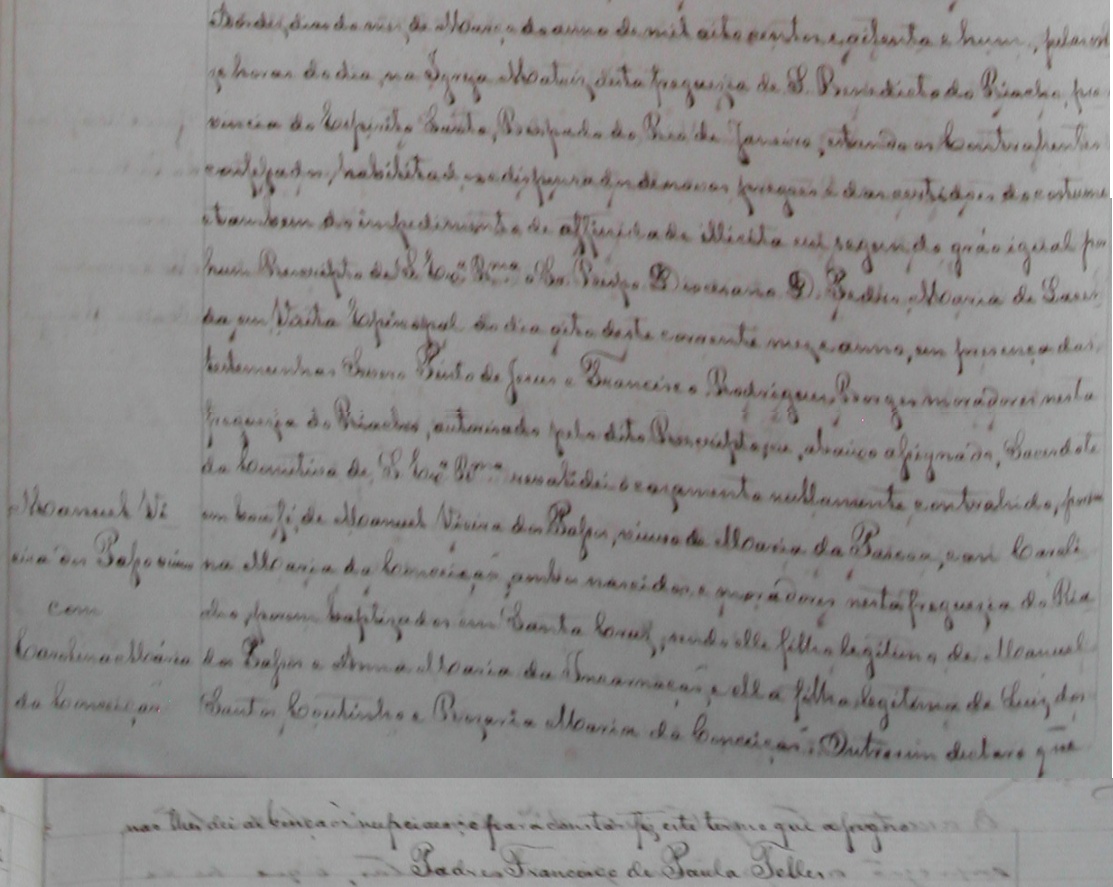 dias do mez de Março do anno de mil oito centos e oitenta e hum, pelas
horas do dia, na Igreja Matriz desta freguezia de S. Benedicto do Riacho, pro
vincia do Espirito Santo, Bispado do Rio de Janeiro, estando os Contrahentes
confessados, habilitados, e dispensados de novos pregões e das certidões do costume
e tambem do impedimento de affinidade illicita em segundo gráo igual por
hum Rescripto de S. Exª Rma o Sr. Bispo Diocesano D. Pedro Maria de Lacer
da em Visita Episcopal do dia oito deste corrente mez e anno, em presença das
testemunhas Pinto de Jesus e Francisco Rodrigues Borges moradores nesta
freguezia do Riacho, autorisado pelo dito Rescripto, eu, abaixo assignado, Sacerdote
da Comitiva de S. Exª Rma revalidei o casamento nullamente contrahido, porem
em boa fé, de Manuel Vieira dos Passos, viuvo de Maria da Paschoa, com Caroli
na Maria da Conceição, ambos nascidos e moradores nesta freguezia do Ria
cho, porem baptizados em Santa Cruz, sendo elle filho legitimo de Manuel
dos Passos e Anna Maria da Incarnação, e ella filha legitima de Luiz dos
Santos Coutinho e Rozaria Maria da Conceição. Outrosim declaro que
Manuel Vi
eira dos Passos viuvo
com
Carolina Maria
da Conceição
não lhes dei as bençãos nupciaes; e para constar fiz este termo que assigno
Padre Francisco de Paula Telles